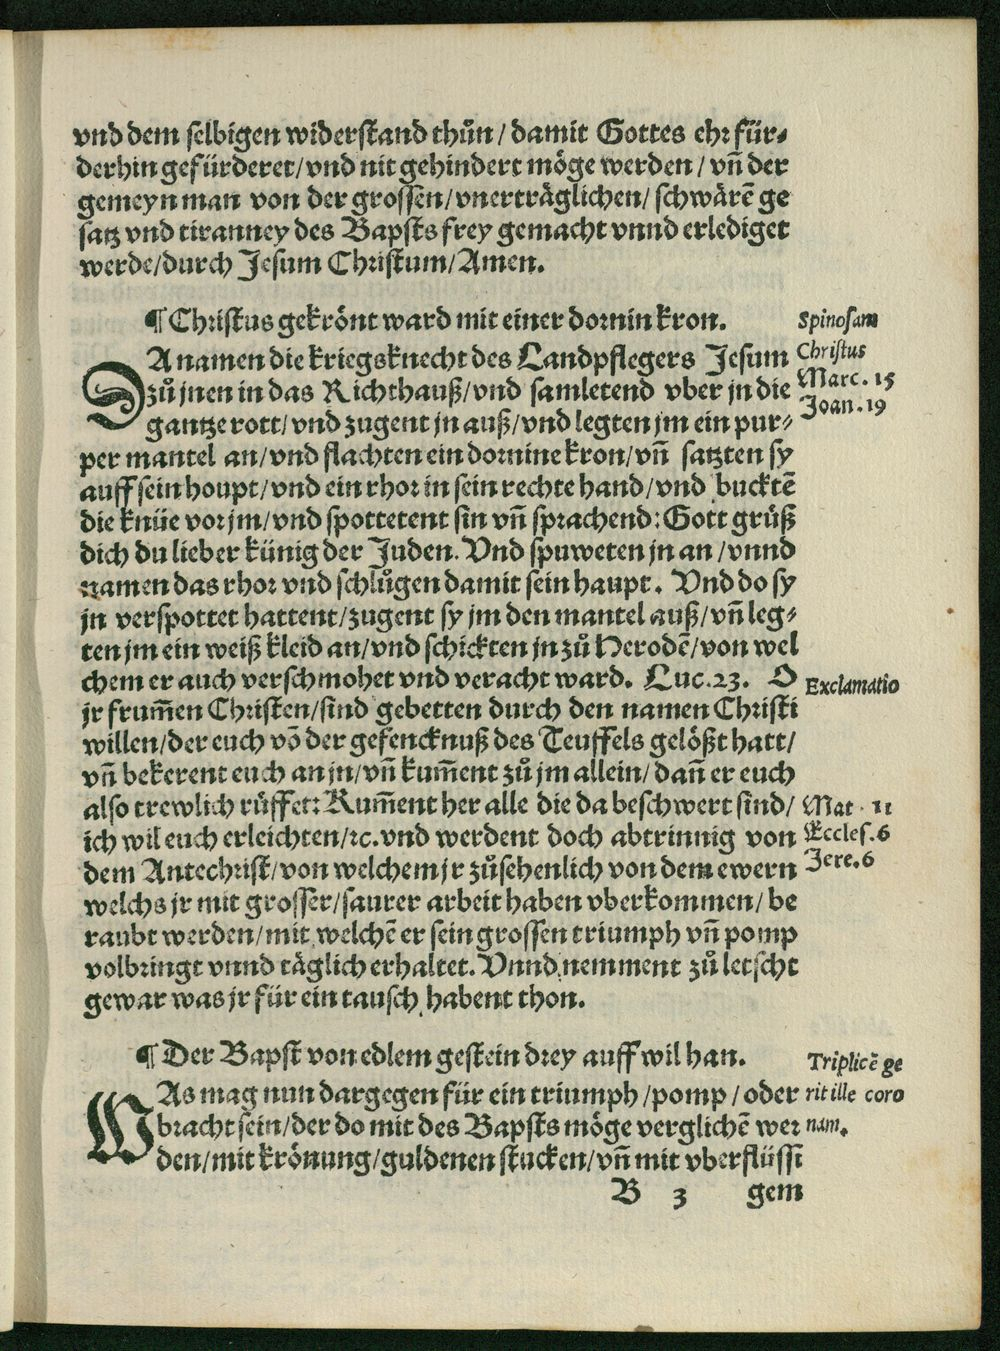 vnd dem selbigen widerstand thůn / damit Gottes ehr für⸗
derhin gefürderet / vnd nit gehindert möge werden / vn̄ der
gemeyn man von der grossen / vnerträglichen / schwärē ge
satz vnd tiranney des Bapsts frey gemacht vnnd erlediget
werde / durch Jesum Christum / Amen.
¶ Christus gekrönt ward mit einer dornin kron.
Spinosam
DA namen die kriegsknecht des Landpflegers Jesum
Christus
zů jnen in das Richthauß / vnd samletend vber jn die
Marc. 15
gantze rott / vnd zugent jn auß / vnd legten jm ein pur⸗
Joan. 19
per mantel an / vnd flachten ein dornine kron / vn̄ satzten sy
auff sein houpt / vnd ein rhor in sein rechte hand / vnd bucktē
die knüe vor jm / vnd spottetent sin vn̄ sprachend: Gott grüß
dich du lieber künig der Juden. Vnd spuweten jn an / vnnd
namen das rhor vnd schlůgen damit sein haupt. Vnd do sy
jn verspottet hattent / zugent sy jm den mantel auß / vn̄ leg⸗
ten jm ein weiß kleid an / vnd schickten jn zů Herodē / von wel
chem er auch verschmohet vnd veracht ward. Luc. 23. O
Exclamatio
jr frum̄en Christen / sind gebetten durch den namen Christi
willen / der euch vō der gefencknuß des Teuffels gelößt hatt /
vn̄ bekerent euch an jn / vn̄ kum̄ent zů jm allein / dan̄ er euch
also trewlich rüffet: Kum̄ent her alle die da beschwert sind /
Mat. 11
ich wil euch erleichten / ꝛc. vnd werdent doch abtrinnig von
Eccles. 6
dem Antechrist / von welchem jr zůsehenlich von dem ewern
Jere. 6
welchs jr mit grosser / saurer arbeit haben vberkommen / be
raubt werden / mit welchē er sein grossen triumph vn̄ pomp
volbringt vnnd täglich erhaltet. Vnnd nemment zů letscht
gewar was jr für ein tausch habent thon.
¶ Der Bapst von edlem gestein drey auff wil han.
Triplicē ge
WAs mag nun dargegen für ein triumph / pomp / oder
rit ille coro
bracht sein / der do mit des Bapsts möge verglichē wer
nam.
den / mit krönung / guldenen stucken / vn̄ mit vberflüssī
B 3 gem